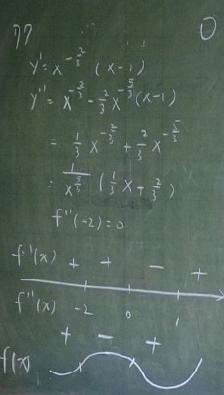 77
y' = x^{-2/3} (x-1)
y'' = x^{-2/3} - 2/3 x^{-5/3} (x-1)
= 1/3 x^{-2/3} + 2/3 x^{-5/3}
= 1/x^{5/3} (1/3 x + 2/3)
f''(-2) = 0
f'(x) + + - +
f''(x) -2 0 1
+ - +
f(x)